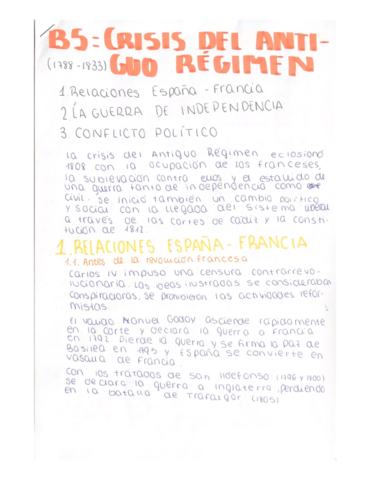 B5: CRISIS DEL ANTI-
(1788-1833) GUO RÉGIMEN
1 Relaciones España - Francia
2 LA GUERRA DE INDEPENDENCIA
3 CONFLICTO POLÍTICO
La crisis del Antiguo Régimen eclosionó
1808 con la ocupación de los franceses,
la sublevación contra ellos y el estallido de
una guerra tanto de independencia como
civil. Se inició también un cambio político
y social con la llegada del sistema liberal
a través de las cortes de Cádiz y la consti-
tución de 1812.
1. RELACIONES ESPAÑA - FRANCIA
1.1. Antes de la revolución francesa
Carlos IV impuso una censura contrarrevo-
lucionaria. Las ideas ilustradas se consideraban
conspiradoras, se prohibieron las actividades refor-
mistas.
El valido Manuel Godoy asciende rápidamente
en la corte y declara la guerra a Francia
en 1792. Pierde la guerra y se firma la paz de
Basilea en 1795 y España se convierte en
vasalla de Francia
Con los tratados de San Ildefonso (1796 y 1800)
se declara la guerra a Inglaterra, perdiendo
en la batalla de Trafalgar (1805)